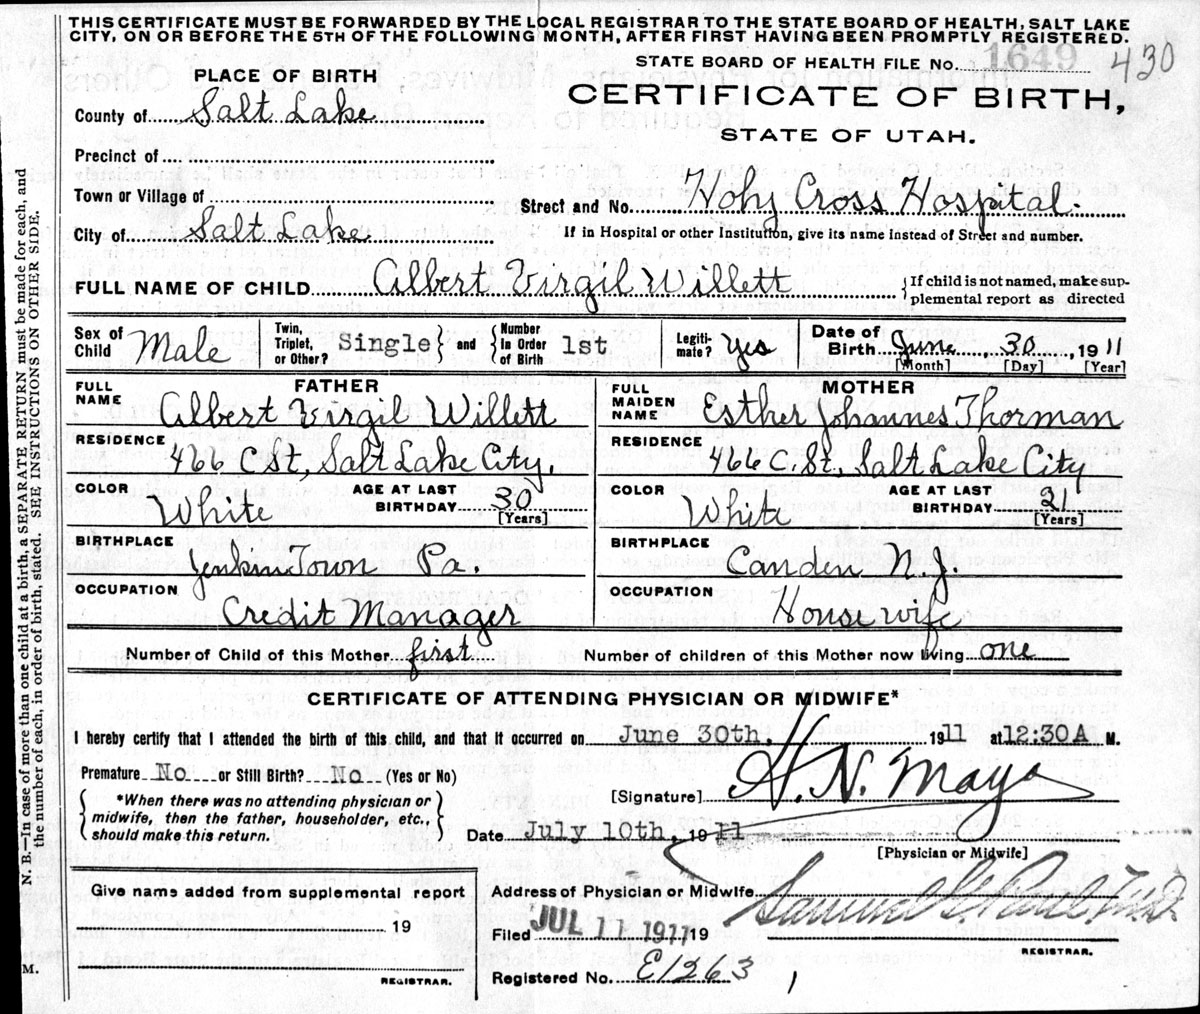 THIS CERTIFICATE MUST BE FORWARDED BY THE LOCAL REGISTRAR TO THE STATE BOARD OF HEALTH, SALT LAKE
CITY, ON OR BEFORE THE 5TH OF THE FOLLOWING MONTH, AFTER FIRST HAVING BEEN PROMPTLY REGISTERED.
STATE BOARD OF HEALTH FILE No. 1649 430
PLACE OF BIRTH
CERTIFICATE OF BIRTH,
STATE OF UTAH.
County of Salt Lake
Precinct of
Town or Village of
Street and No. Holy Cross Hospital.
City of Salt Lake
If in Hospital or other Institution, give its name instead of Street and number.
FULL NAME OF CHILD Albert Virgil Willett { If child is not named, make sup-
plemental report as directed
Sex of Child Male Twin, Triplet, or Other? Single and Number In Order of Birth 1st Legiti-mate? Yes Date of Birth June, 30, 1911
[Month] [Day] [Year]
FATHER MOTHER
FULL NAME Albert Virgil Willett FULL MAIDEN NAME Esther Johannes Thorman
RESIDENCE 466 C St, Salt Lake City. RESIDENCE 466 C. St, Salt Lake City
COLOR White AGE AT LAST BIRTHDAY 30 [Years] COLOR White AGE AT LAST BIRTHDAY 21 [Years]
BIRTHPLACE Jenkin Town Pa. BIRTHPLACE Canden, N. J.
OCCUPATION Credit Manager OCCUPATION House wife
Number of Child of this Mother first Number of children of this Mother now living one
CERTIFICATE OF ATTENDING PHYSICIAN OR MIDWIFE*
I hereby certify that I attended the birth of this child, and that it occurred on June 30th, 1911 at 12:30A M.
Premature No. or Still Birth? No. (Yes or No)
*When there was no attending physician or
midwife, then the father, householder, etc.,
should make this return.
[Signature] H. N. Mayo
Date July 10th, 1911
[Physician or Midwife]
Give name added from supplemental report
19
REGISTRAR.
Address of Physician or Midwife
Filed JUL 11 1911 19
REGISTRAR.
Registered No. E1263
N. B.—In case of more than one child at a birth, a SEPARATE RETURN must be made for each, and
the number of each, in order of birth, stated. SEE INSTRUCTIONS ON OTHER SIDE.
M.